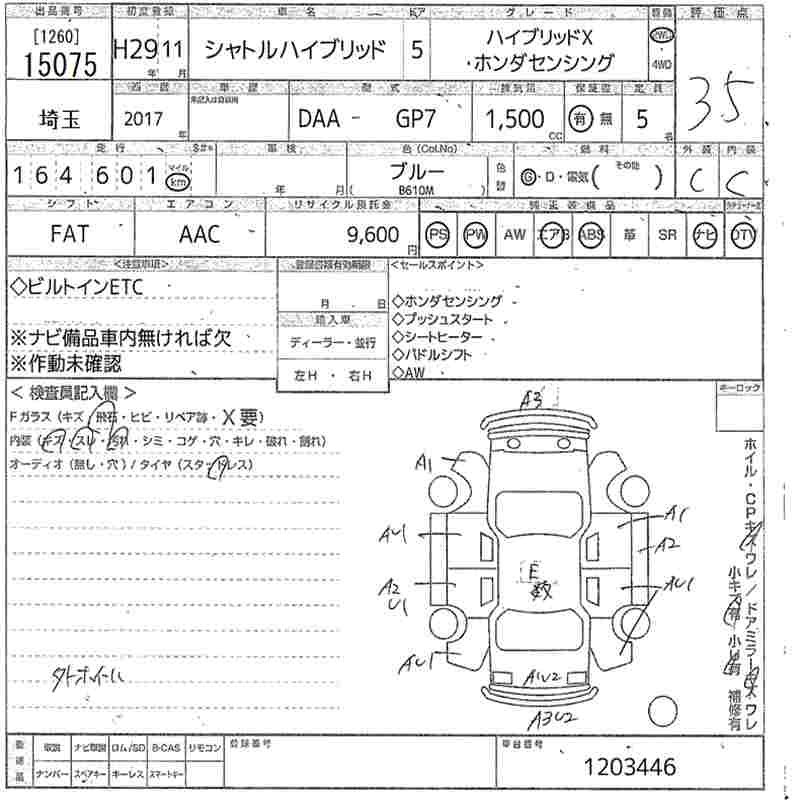 出品番号 初度登録 車名 ドア グレード 駆動 評価点
[1260] 15075 H29 年 11 月 シャトルハイブリッド 5 ハイブリッドX ・ホンダセンシング 2WD ・4WD 3.5
西暦 車歴 型式 排気量 保証書 定員
埼玉 2017 年 未記入は自家用 DAA - GP7 1,500 CC 有 無 5 名
走行 車検 色(Col.No) 燃料 外装 内装
164,601 マイル km 年 月( ブルー B610M ) 色替 G・D・電気( その他 ) C C
シフト エアコン リサイクル預託金 純正装備品
FAT AAC 9,600 円 PS PW AW エアB ABS 革 SR ナビ DTV
<注意事項> 登録書類有効期限 <セールスポイント>
◇ビルトインETC
月 日
◇ホンダセンシング
◇プッシュスタート
◇シートヒーター
◇パドルシフト
◇AW
※ナビ備品車内無ければ欠
※作動未確認
輸入車
ディーラー・並行
左H ・ 右H
< 検査員記入欄 > キーロック
Fガラス (キズ・飛石・ヒビ・リペア跡・X要)
内装 (キズ・スレ・汚れ・シミ・コゲ・穴・キレ・破れ・割れ)
オーディオ (無し・穴) / タイヤ (スタッドレス)
A3
A1
AU1 A1
A2
E
数
A2
U1 AU1
AU1
A1U2
A3U2
外ホイール
ホイル・CPキズワレ / ドアミラーキズワレ
小キズ有 小凹有 補修有
取説 ナビ取説 ロム/SD B-CAS リモコン 登録番号 車台番号
ナンバー スペアキー キーレス スマートキー 1203446